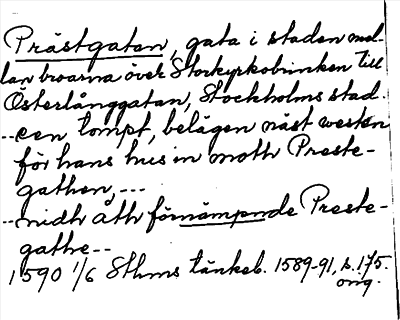 Prästgatan, gata i staden mel-
lan broarna över Storkyrkobrinken till
Österlånggatan, Stockholms stad.
--een tompt, belägen näst westen
för hans hus in moth Preste-
gathen,---
--nidh åth förnämpnde Preste-
gathe--
1590 1/6 Sthms tänkeb. 1589-91, s.175.
orig.